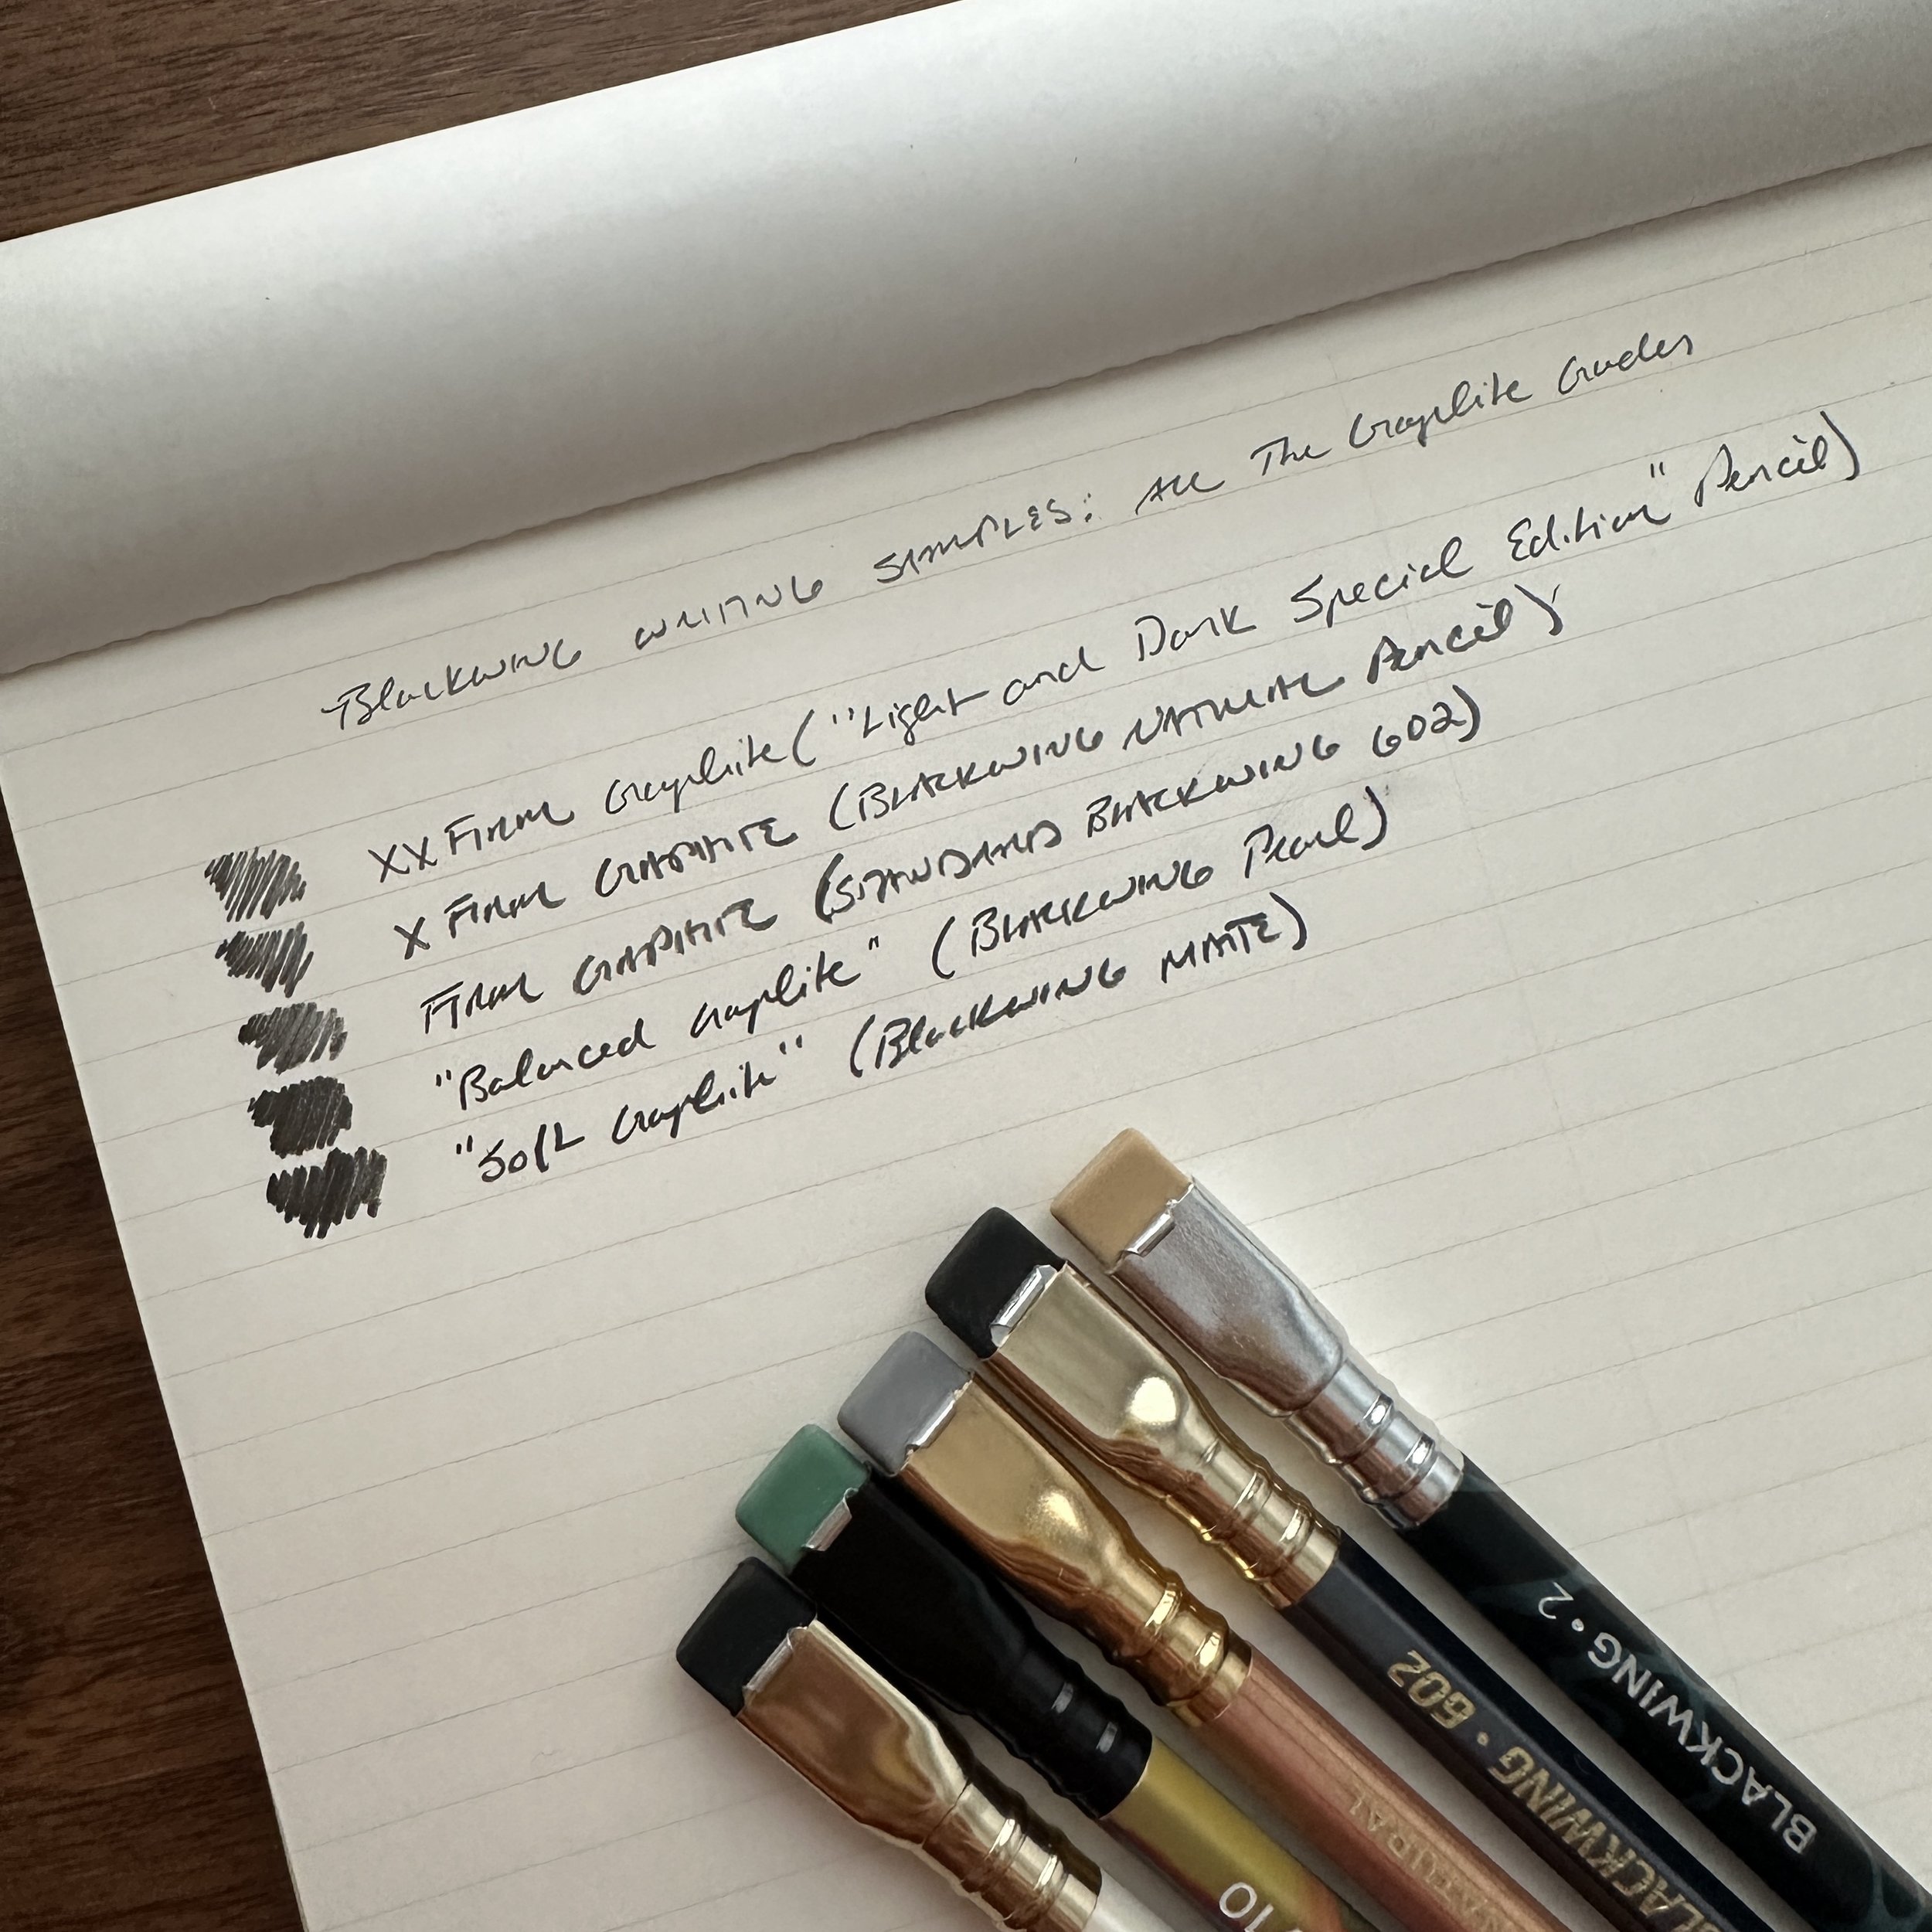 Blackwing Writing Samples: All The Graphite Grades
XX Firm Graphite ("Light and Dark Special Edition" Pencil)
X Firm Graphite (Blackwing Natural Pencil)
Firm Graphite (Standard Blackwing 602)
"Balanced Graphite" (Blackwing Pearl)
"Soft Graphite" (Blackwing Matte)
BLACKWING • 2
BLACKWING • 602
NATURAL
710